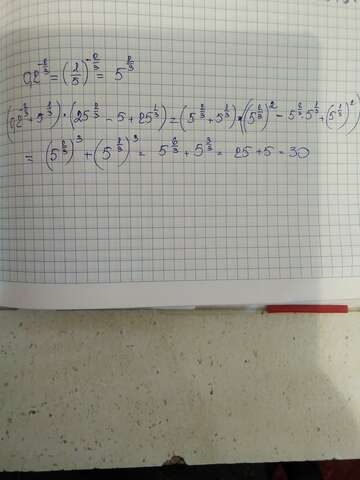 0,2^{-\frac{2}{3}} = \left(\frac{2}{5}\right)^{-\frac{2}{3}} = 5^{\frac{2}{3}}
\left(0,2^{-\frac{2}{3}} + 5^{\frac{1}{3}}\right) \cdot \left(25^{\frac{2}{3}} - 5 + 25^{\frac{1}{3}}\right) = \left(5^{\frac{2}{3}} + 5^{\frac{1}{3}}\right) \cdot \left(\left(5^{\frac{2}{3}}\right)^2 - 5^{\frac{2}{3}} \cdot 5^{\frac{1}{3}} + \left(5^{\frac{1}{3}}\right)^2\right)
= \left(5^{\frac{2}{3}}\right)^3 + \left(5^{\frac{1}{3}}\right)^3 = 5^{\frac{6}{3}} + 5^{\frac{3}{3}} = 25 + 5 = 30